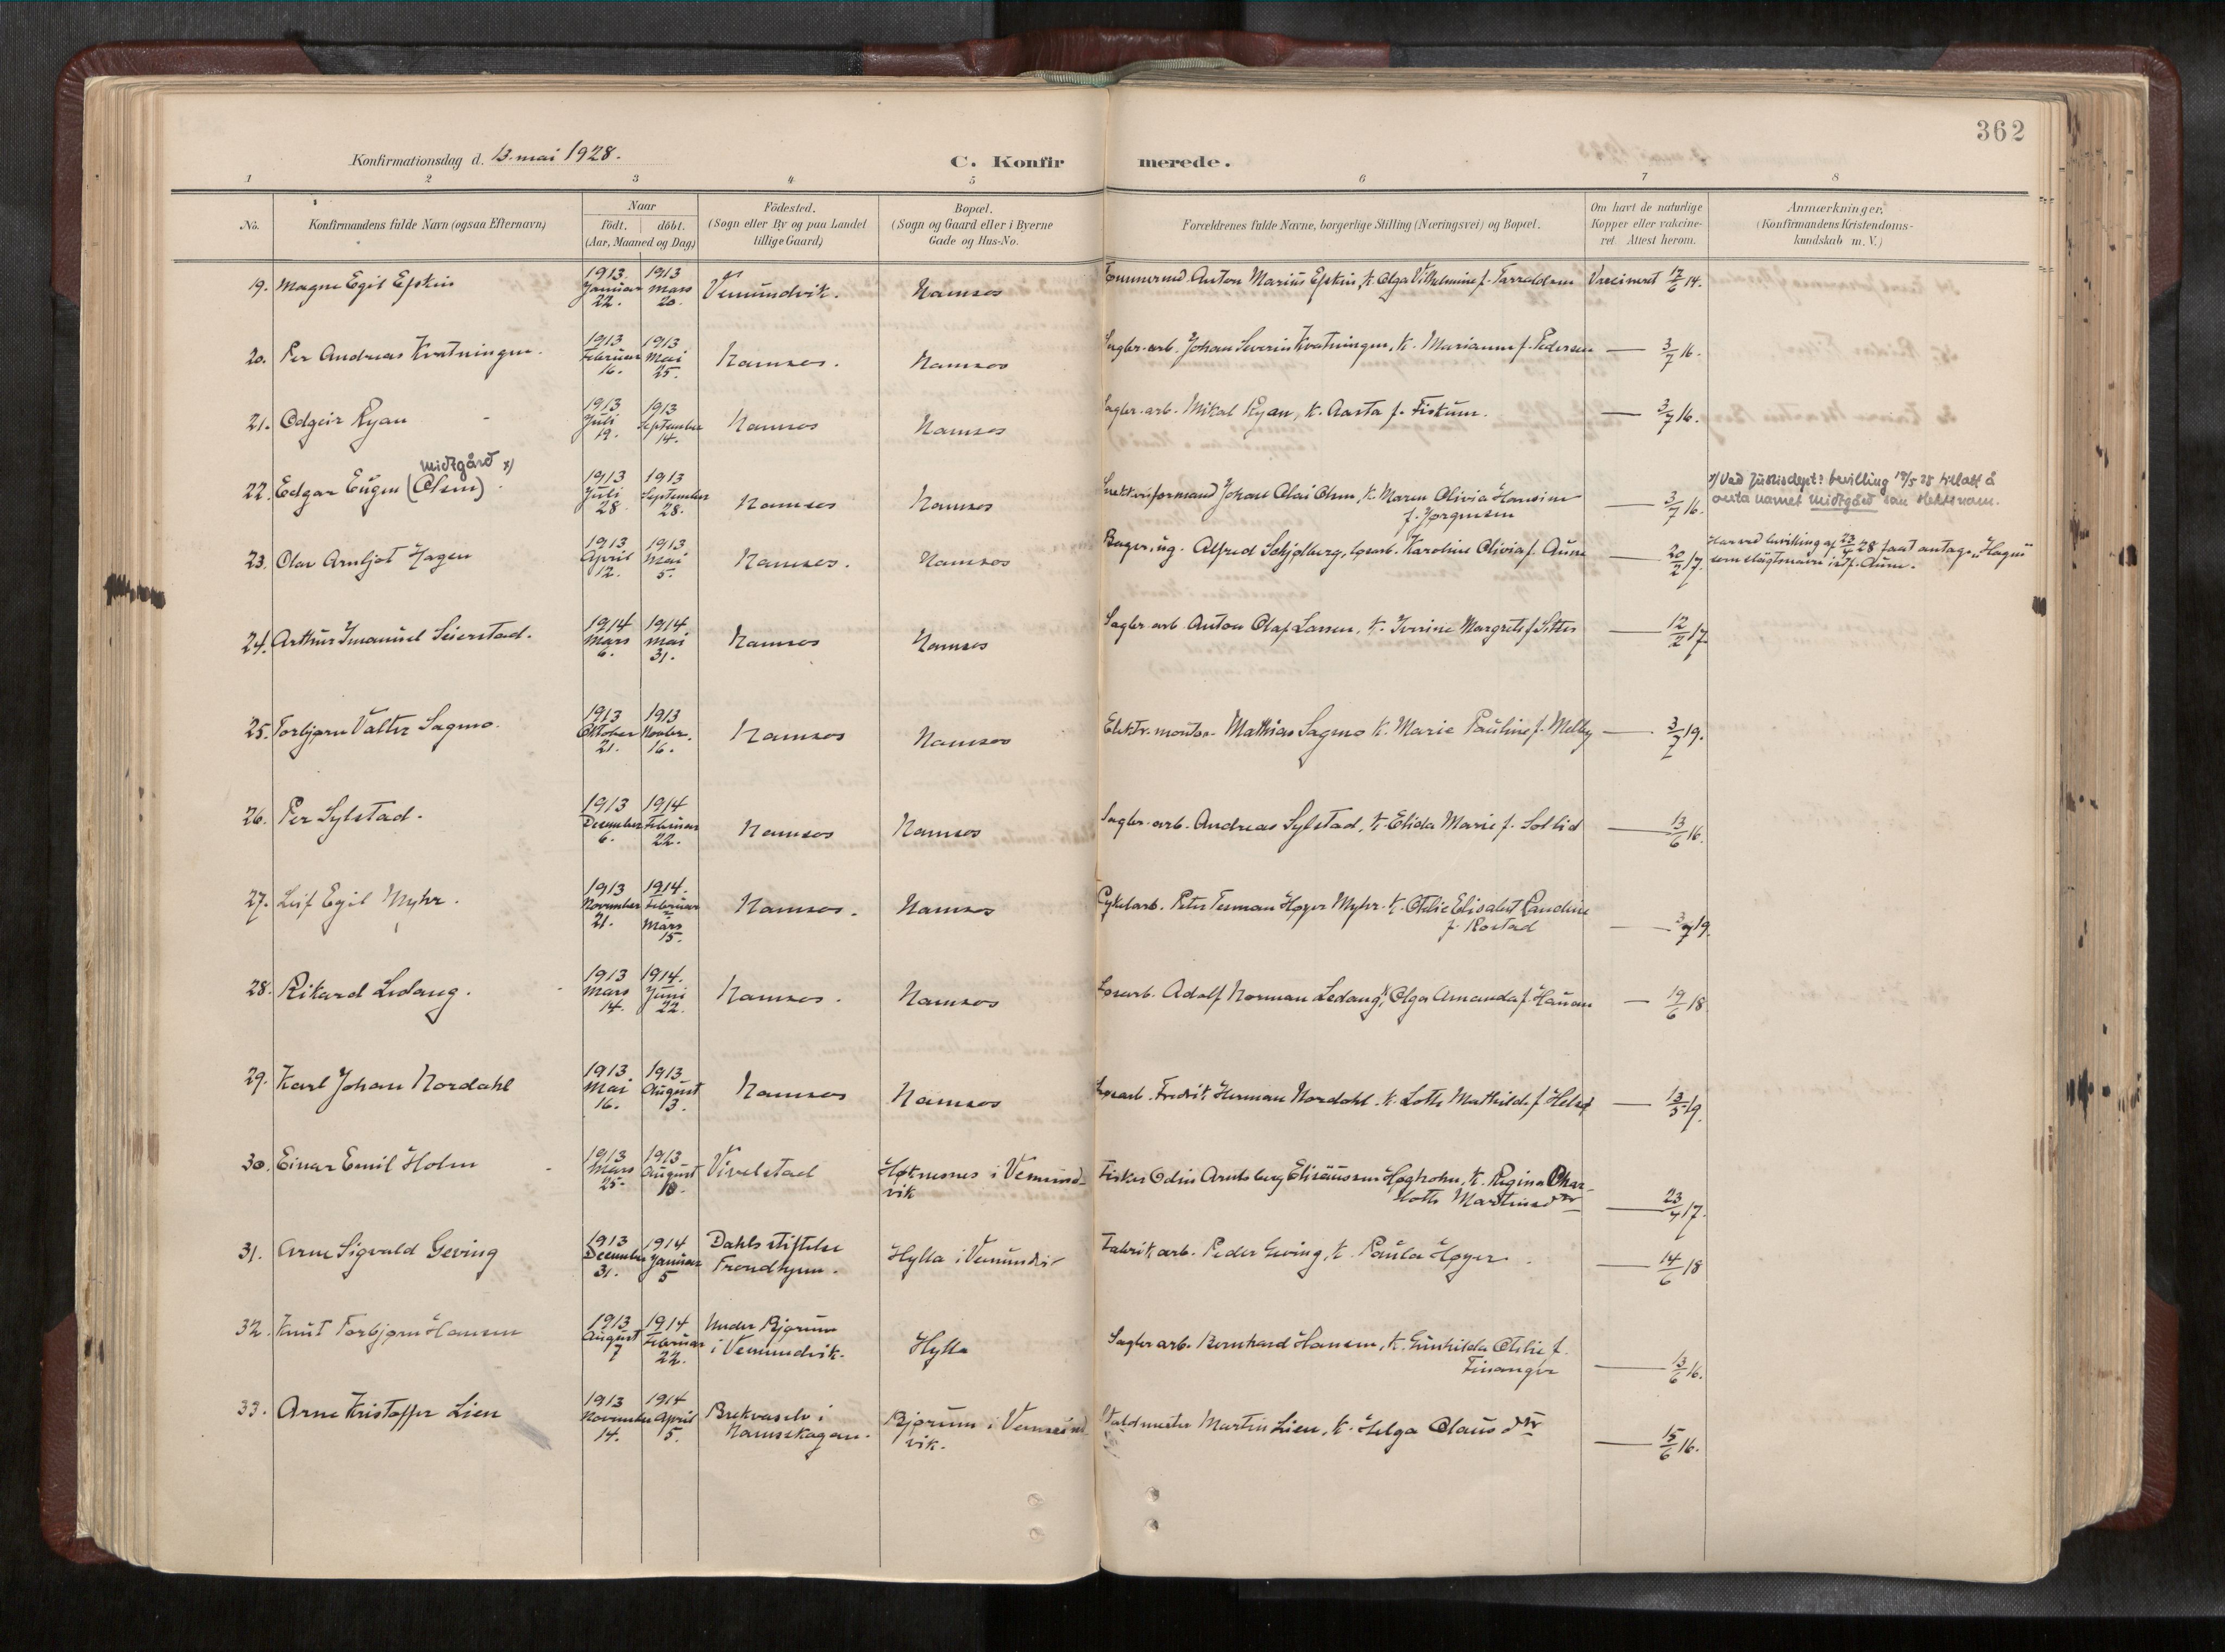 362
Konfirmationsdag d. 13. mai 1928.
C. Konfirmerede.
1 2 3 4 5 6 7 8
No.
Konfirmandens fulde Navn (ogsaa Efternavn)
Naar
födt. döbt.
(Aar, Maaned og Dag)
Födested.
(Sogn eller By og paa Landet
tillige Gaard)
Bopæl.
(Sogn og Gaard eller i Byerne
Gade og Hus-No.
Forældrenes fulde Navne, borgerlige Stilling (Næringsvei) og Bopæl.
Om havt de naturlige
Kopper eller vakcine-
ret. Attest herom.
Anmærkninger.
(Konfirmandens Kristendoms-
kundskab m. V.)
19. Magne Egil 1913 Januar 22. 1913 Mars 20. Vemundvik. Namsos Anton Marius K. Olga Vilhelmine f. Vaccineret 12/6 14.
20. Per Andreas Kvatningen. 1913 Februar 16. 1913 Mai 25. Namsos. Namsos Sagbr. arb. Johan Severin Kvatningen, K. Marianne f. Pedersen — 3/7 16.
21. Odgeir Ryan 1913 Juli 19. 1913 September 14. Namsos Namsos Sagbr. arb. Mikal Ryan, K. Aasta f. Fiskum. — 3/7 16.
Midtgård x)
22. Edgar Eugen (Olsen). 1913 Juli 28 1913 September 28. Namsos Namsos Johan Olai Olsen, K. Maren Olivia Hansine
f. Jørgensen — 3/7 16.
x) Ved Justisdept.s bevilling 18/5 28 tillatt å
anta navnet Midtgård som slektsnavn.
23. Olav Arnljot Hagen 1913 April 12. 1913 Mai 5. Namsos. Namsos Bager, ug. Alfred Schjølberg, løsarb. Karoline Olivia f. Aune — 20/2 17.
Har ved bevilling af 23/4 28 faat antage "Hagen"
som slægtsnavn istf. Aune.
24. Arthur Imanuel Seierstad. 1914 Mars 6. 1914 Mai 31. Namsos Namsos Sagbr. arb. Anton Olaf Larsen, K. Margrete f. — 12/2 17
25. Torbjørn Valter Sagmo. 1913 Oktober 21. 1913 Novbr. 16. Namsos Namsos Elektr. montør. Mathias Sagmo K. Marie Pauline f. Melby — 3/7 19.
26. Per Sylstad. 1913 December 6. 1914 Februar 22. Namsos Namsos Sagbr. arb. Andreas Sylstad, K. Elida Marie f. Sollid — 13/6 16.
27. Leif Egil Myhr. 1913 November 21. 1914. Februar Mars 15. Namsos. Namsos Peter Høyer Myhr. K. Otelie Elisabet
f. Rostad — 3/7 19.
28. Rikard Ledang. 1913 Mars 14. 1914. Juni 22. Namsos. Namsos Løsarb. Adolf Norman Ledang, K. Olga Amanda f. Hansen — 19/6 18
29. Karl Johan Nordahl 1913 Mai 16. 1913 August 3. Namsos Namsos Løsarb. Fredrik Herman Nordahl. K. Lotte Mathilde f. — 13/5 19.
30. Einar Emil Holm 1913 Mars 25. 1913 August 10. Vivelstad Høknesnes i Vemund-
vik Fisker Odin Arntsberg Elisæussen Høgholm, K. Regina Char-
lotte Martinsdtr — 23/4 17.
31. Arne Sigvald Geving 1913 December 31. 1914 Januar 5 Dahls stiftelse
Trondhjem. Hylla i Vemundv. Fabrikarb. Peder Geving, K. Paula Høyer. — 14/6 18
32. Knut Torbjørn Hansen 1913 August 7 1914 Februar 22. Under Bjørum
i Vemundvik. Hylla Sagbr arb. Bernhard Hansen, K. Gunhilda Otelie f.
Finanger — 13/6 16.
33. Arne Kristoffer Lien 1913 November 14. 1914 April 5. Brekvaselv i
Namsskogan. Bjørum i Vemund
vik. Valdmester Martin Lien, K. Helga Olausdtr — 15/6 16.